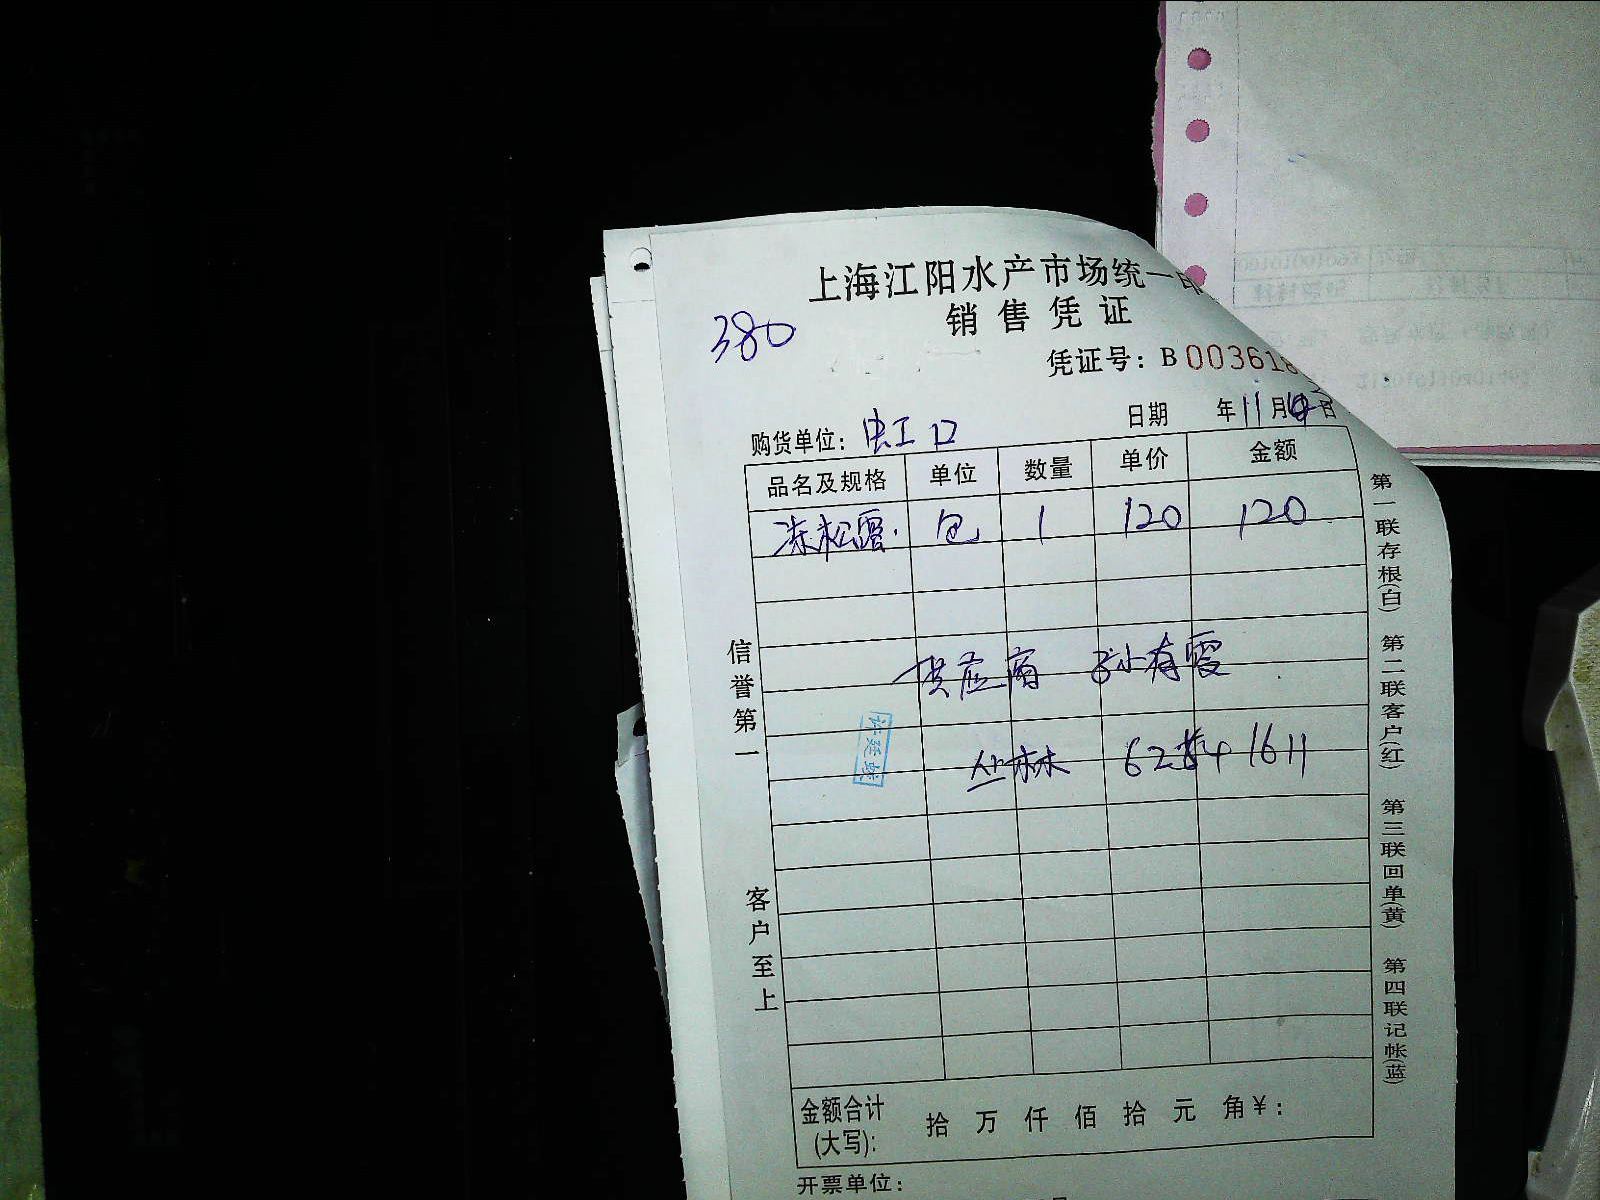 上海江阳水产市场统一印
销售凭证
380
凭证号：B 003618
日期 年11月 日
购货单位：虹口
品名及规格 单位 数量 单价 金额
冻松露 包 1 120 120
供应商 孙有霞
丛林 1611
许廷
信誉第一
客户至上
第一联存根(白) 第二联客户(红) 第三联回单(黄) 第四联记帐(蓝)
金额合计 拾 万 仟 佰 拾 元 角 ¥：
(大写)：
开票单位：